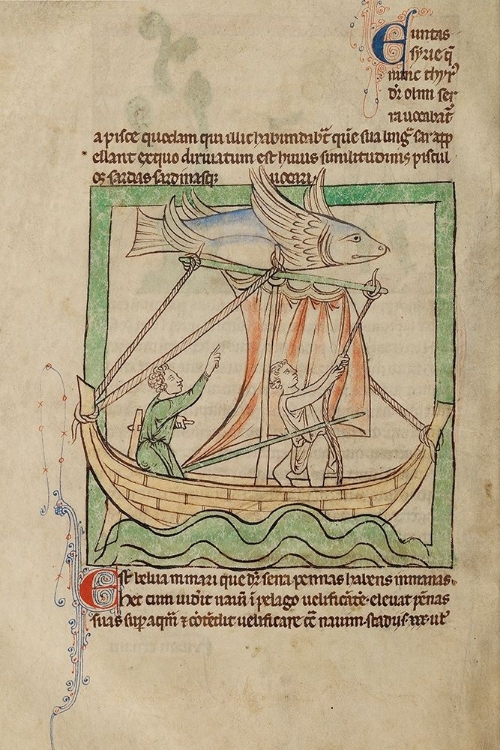 Euntas
syrie q̄
nunc thyr᷑
dr̄ olim ser
ra uocabat᷑
a pisce quodam qui illic habundabt̄ quē sua ling̃ sar app
ellant ex quo diriuatum est huius similitudinis piscicul
os sardas sardinasq; uocari.
Est belua in mari que dr̄ serra pennas habens inmanas.
hec cum uidit nauim i pelago uelificāre eleuat pēnas
suas sup aqm̄ ⁊ cōtendit uelificare nauim stadijs .xxx. ut